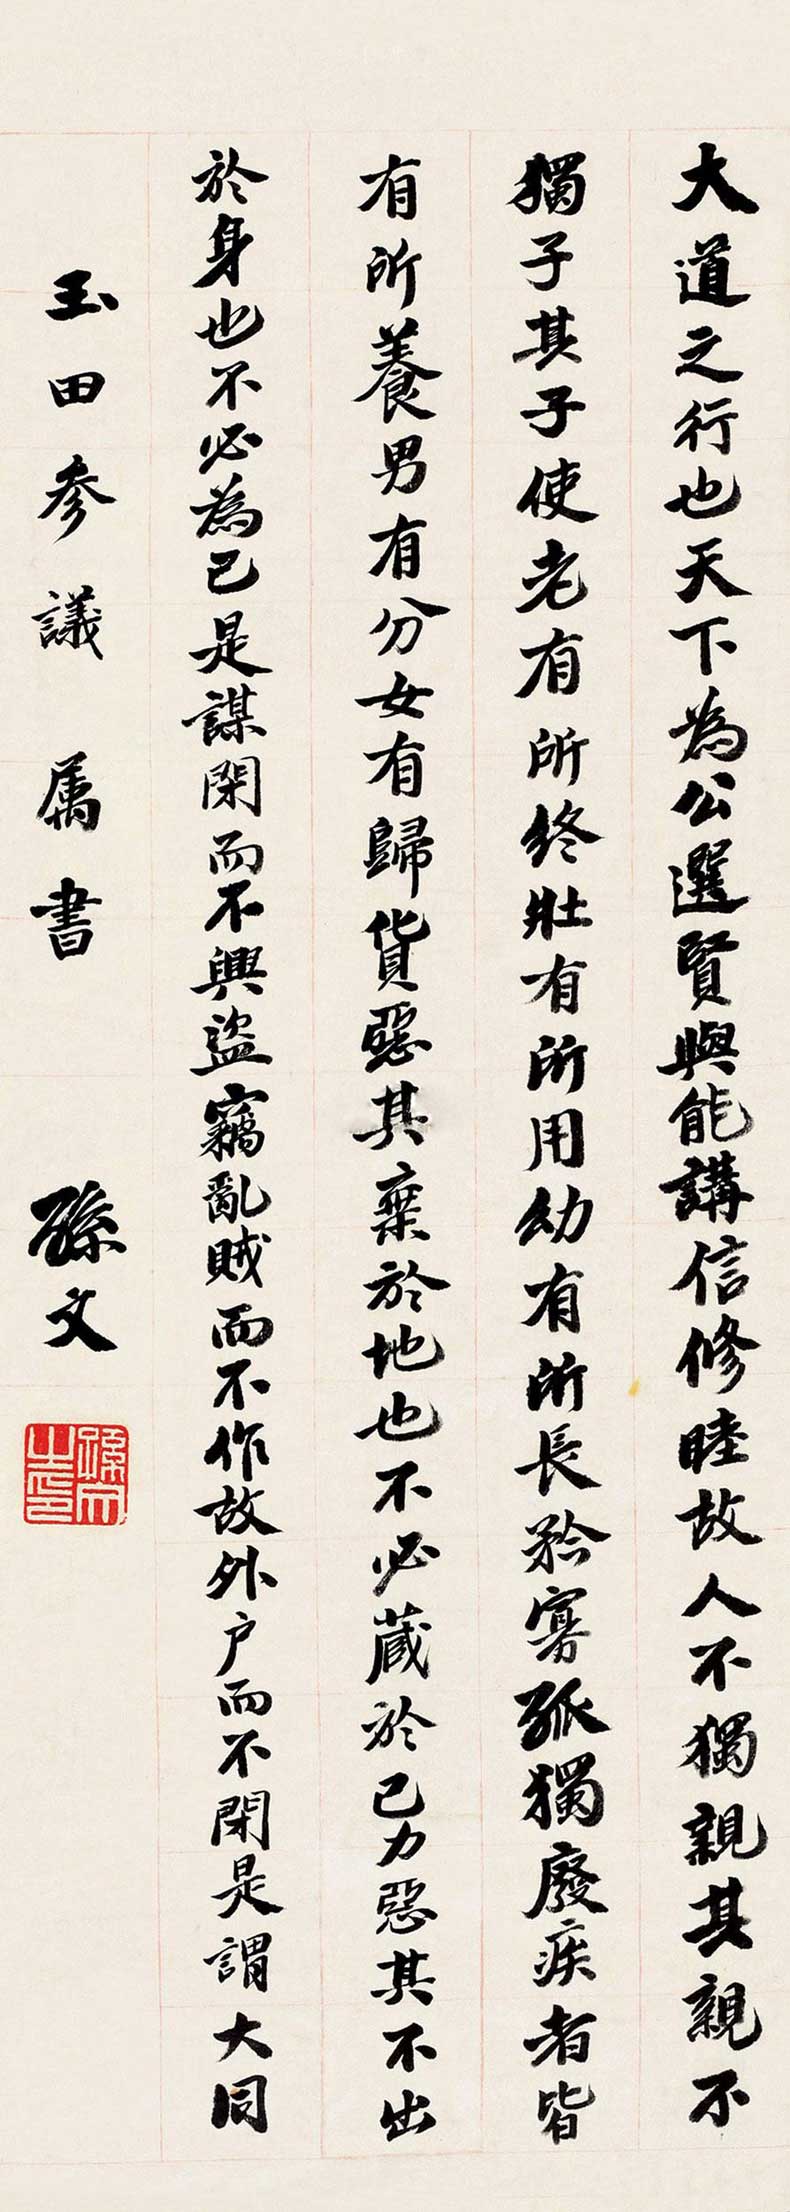 大道之行也天下為公選賢與能講信修睦故人不獨親其親不
獨子其子使老有所終壯有所用幼有所長矜寡孤獨廢疾者皆
有所養男有分女有歸貨惡其棄於地也不必藏於己力惡其不出
於身也不必為己是謀閉而不興盜竊亂賊而不作故外戶而不閉是謂大同
玉田參議 属書 孫文
孫文之印